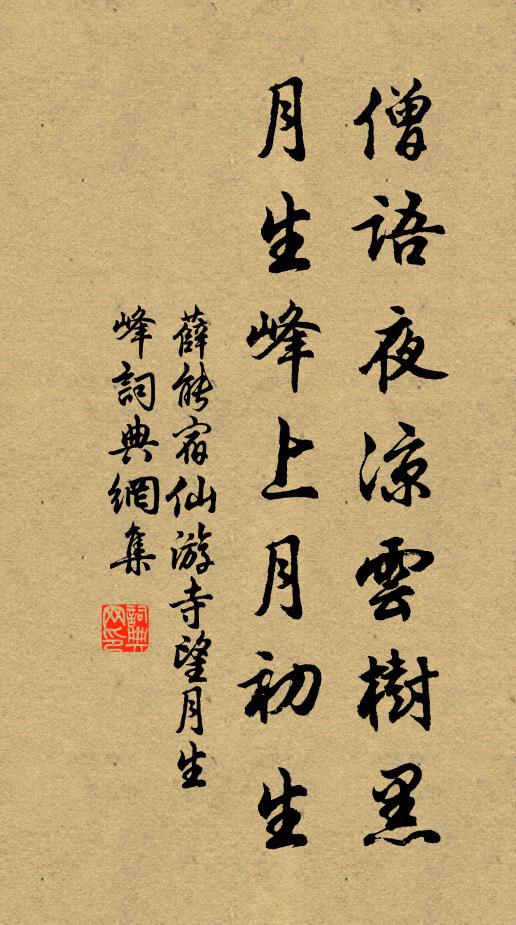 僧語夜涼雲樹黑
月生峰上月初生
薛能宿仙游寺望月生
峰詞典網集
詞典网印